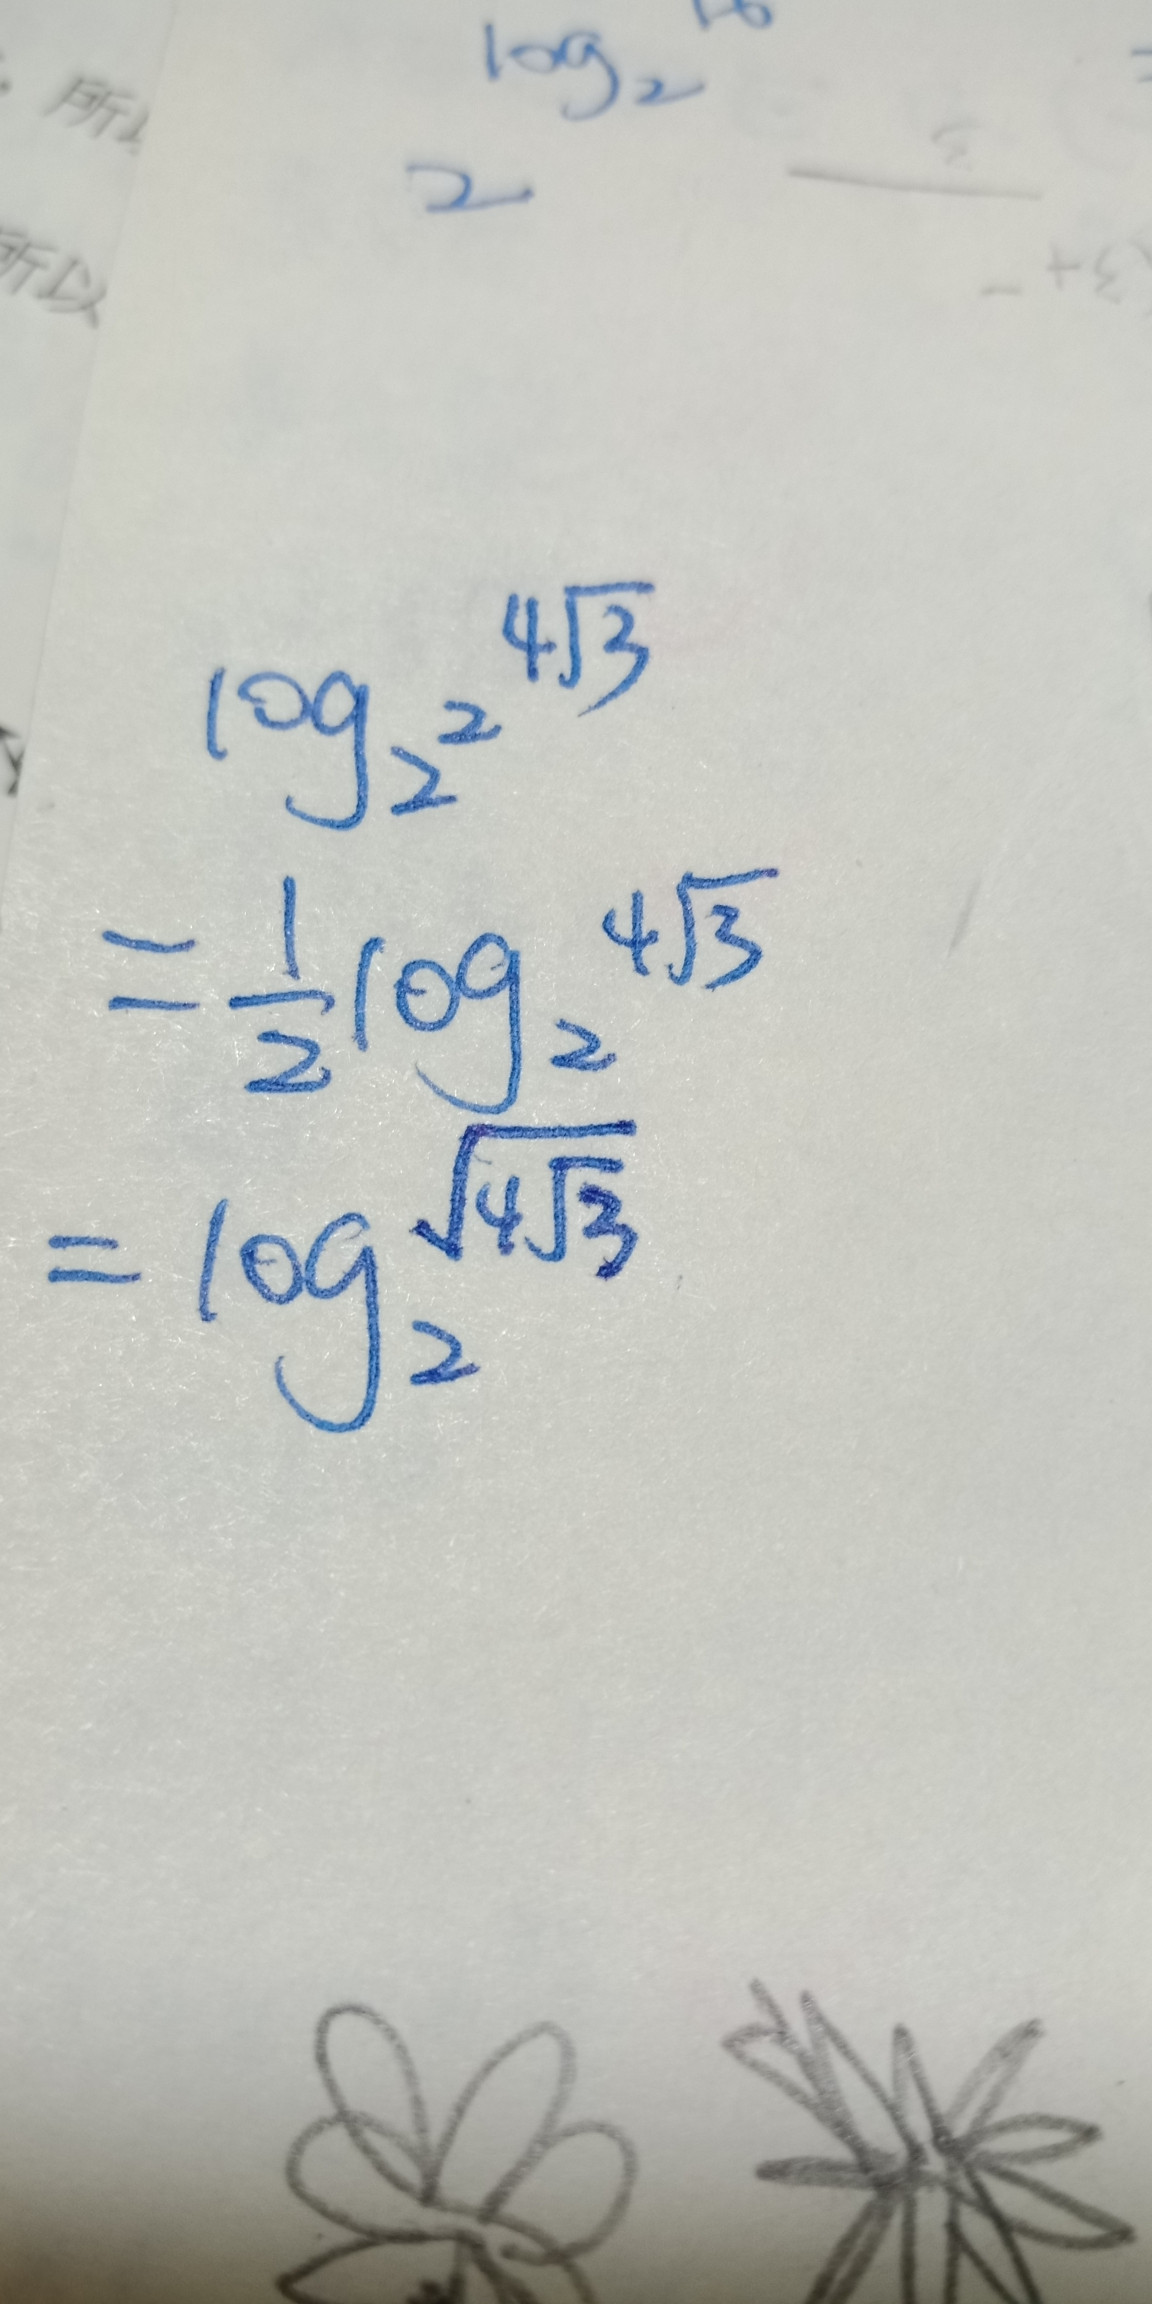 log₂
2
所以
log_{2^2} 4√3
= 1/2 log₂ 4√3
= log₂ √(4√3)